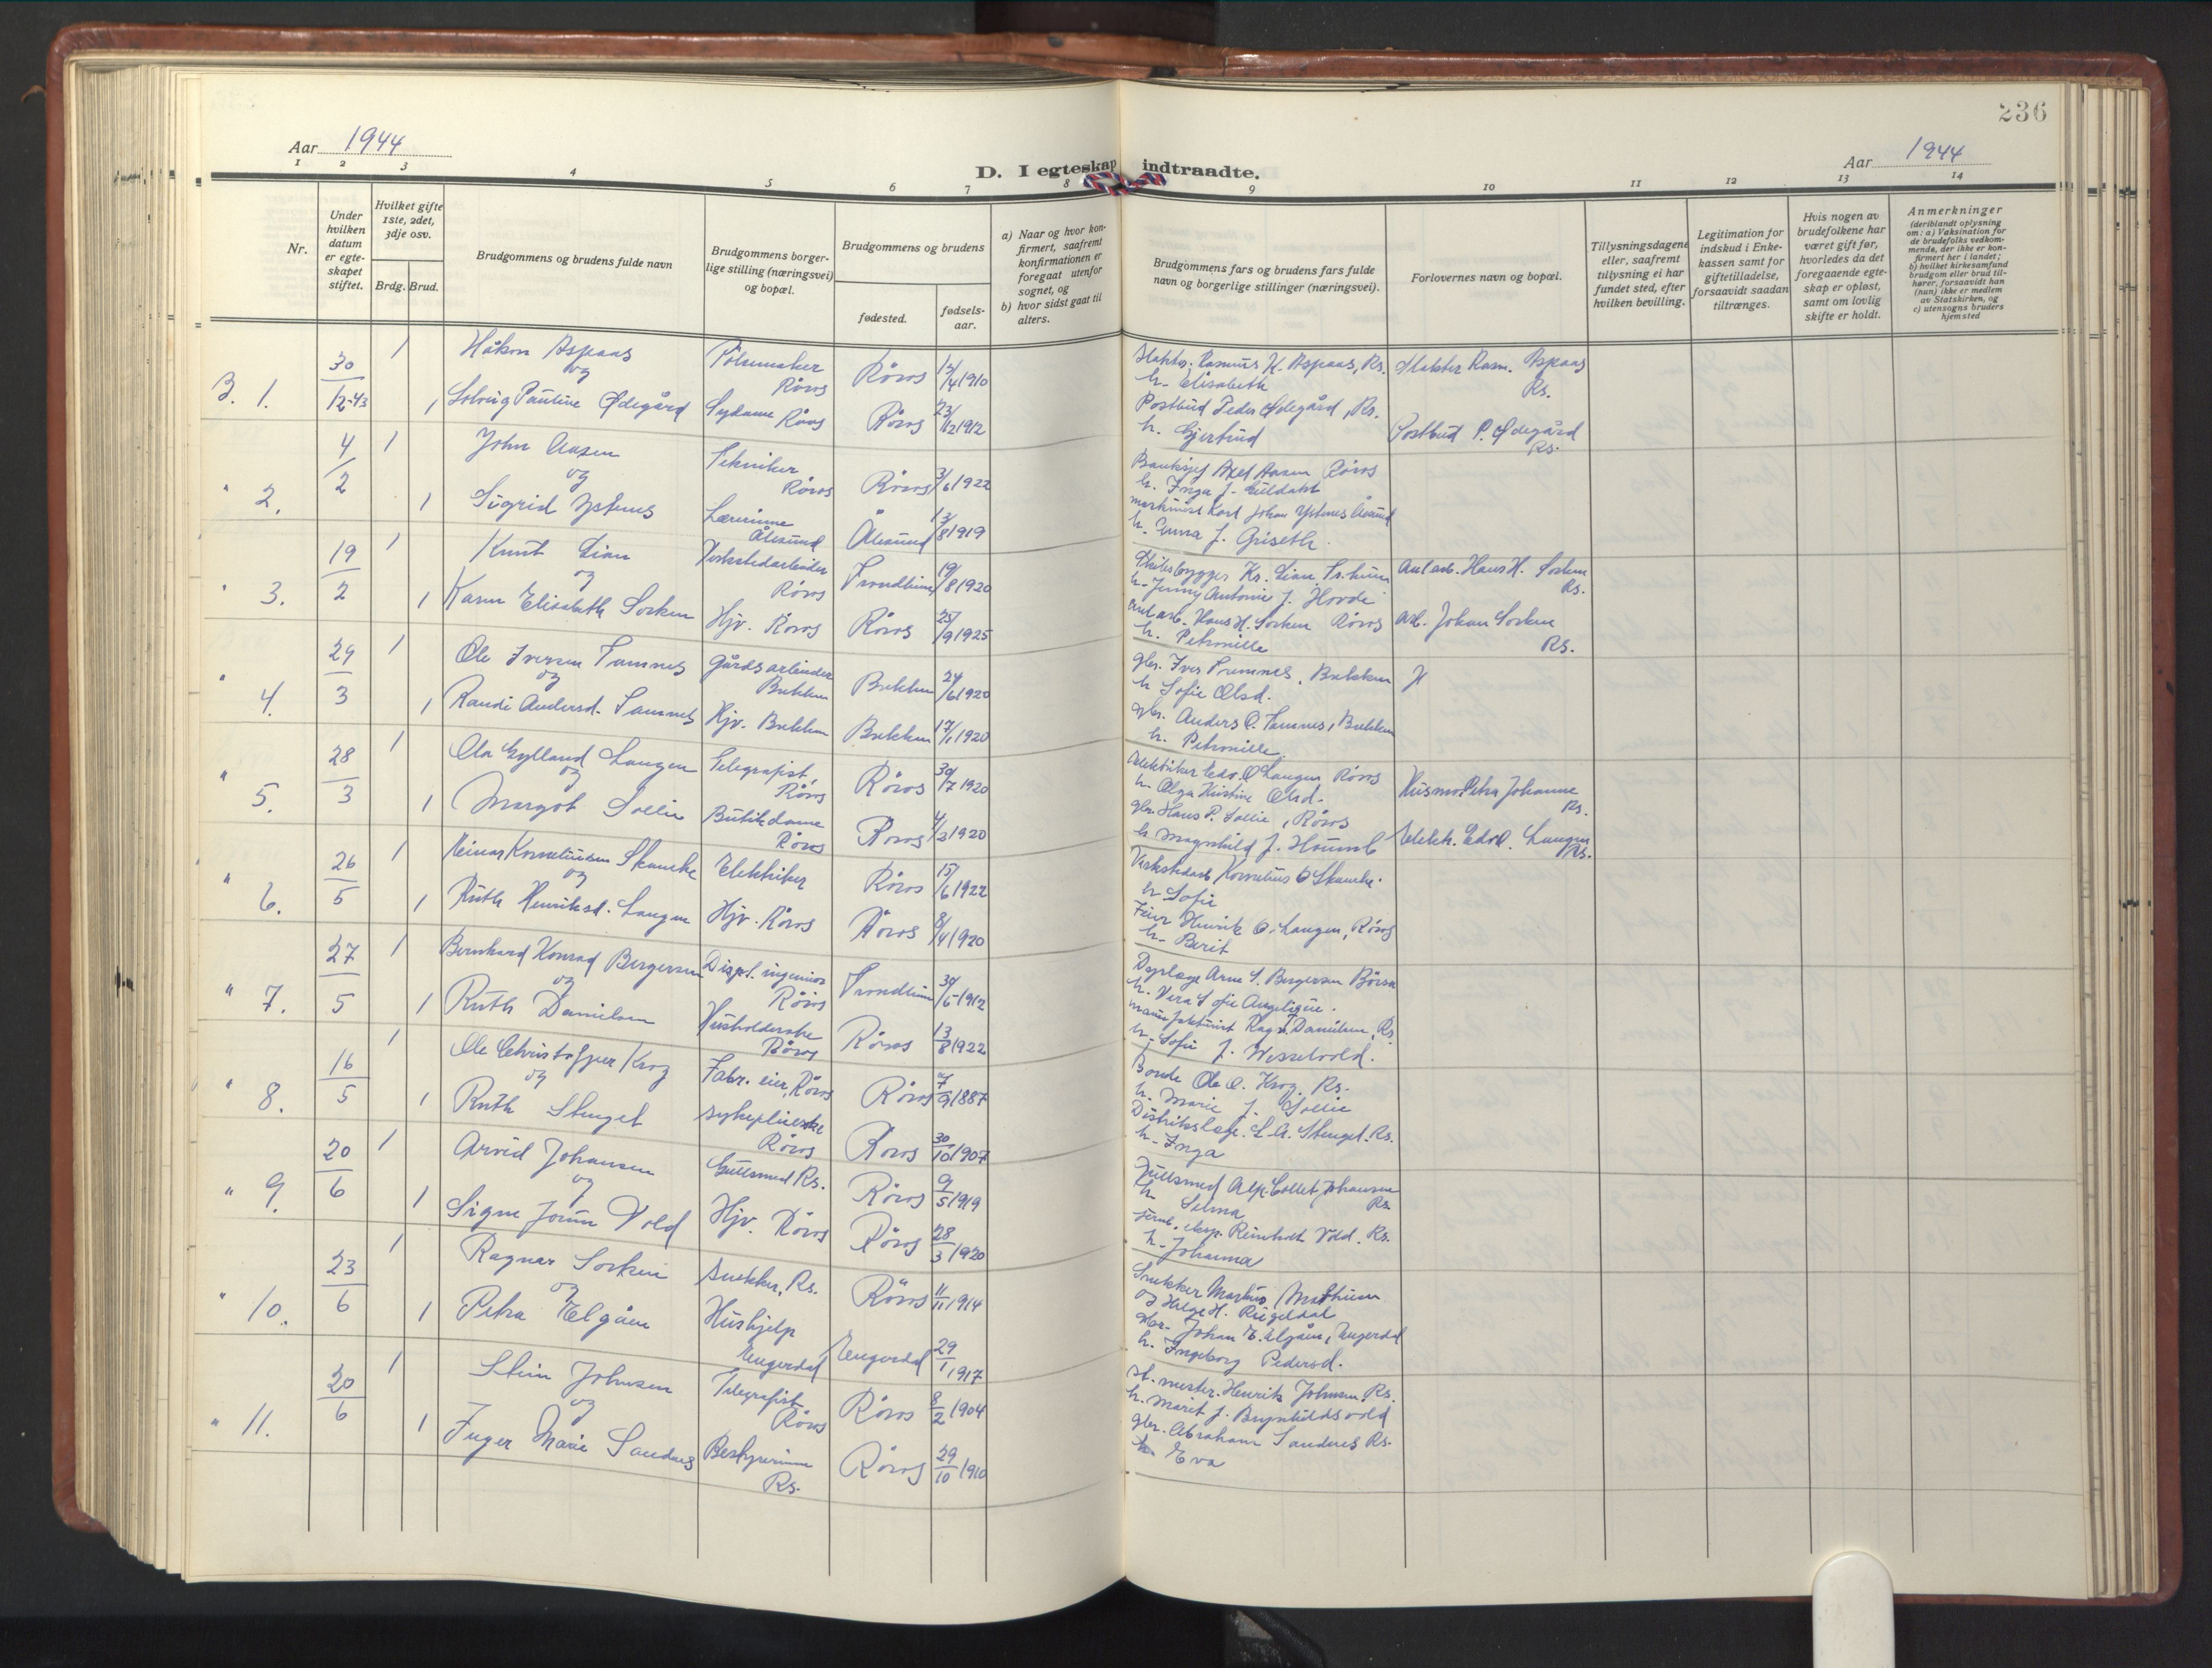 236
Aar 1944
D. I egteskap indtraadte.
Aar 1944
1 2 3 4 5 6 7 8 9 10 11 12 13 14
Nr.
Under hvilken datum er egteskapet stiftet.
Hvilket gifte 1ste, 2det, 3dje osv.
Brdg. Brud.
Brudgommens og brudens fulde navn
Brudgommens borgerlige stilling (næringsvei) og bopæl.
Brudgommens og brudens
fødested.
fødselsaar.
a) Naar og hvor konfirmert, saafremt konfirmationen er foregaat utenfor sognet, og
b) hvor sidst gaat til alters.
Brudgommens fars og brudens fars fulde navn og borgerlige stillinger (næringsvei).
Forlovernes navn og bopæl.
Tillysningsdagene eller, saafremt tillysning ei har fundet sted, efter hvilken bevilling.
Legitimation for indskud i Enkekassen samt for giftetilladelse, forsaavidt saadan tiltrænges.
Hvis nogen av brudefolkene har været gift før, hvorledes da det foregaaende egteskap er opløst, samt om lovlig skifte er holdt.
Anmerkninger (deriblandt oplysning om: a) Vaksination for de brudefolks vedkommende, der ikke er konfirmert her i landet; b) hvilket kirkesamfund brudgom eller brud tilhører, forsaavidt han (hun) ikke er medlem av Statskirken, og c) utensogns bruders hjemsted
B. 1. 30/12-43 1 Håkon Aspaas Pølsemaker Røros Røros 1910
og
1 Solveig Pauline Ødegård Sydame Røros Røros 23/12 1912
Rasmus H. Aspaas, Rs.
h. Elisabeth
Postbud Peder Ødegård, Rs.
h. Gjertrud
Slakter Rasm. Aspaas Rs.
Postbud P. Ødegård Rs.
" 2. 4/2 1 John Aasen Tekniker Røros Røros 3/6 1922
og
1 Sigrid Ystenes Lærerinne Ålesund Ålesund 1919
Banksjef Axel Aasen Røros
h. Inga f. Guldahl
maskinist Karl Johan Ystenes Ålesund
h. Emma f. Griseth.
" 3. 19/2 1 Knut Lian Verkstedarbeider Røros Trondheim 19/8 1920
og
1 Karen Elisabeth Sorken Hjv. Røros Røros 25/9 1925
Kr. Lian, Tr.heim
h. Jenny Antonie f. Hovde
anl.arb. Hans H. Sorken Røros
h. Petronille
Anl.arb. Hans H. Sorken Rs.
arb. Johan Sorken Rs.
" 4. 29/3 1 Ole Iversen Tamnes gårdsarbeider Brekken Brekken 24/6 1920
og
1 Randi Andersd. Tamnes Hjv. Brekken Brekken 17/1 1920
gbr. Iver Tamnes, Brekken
h. Sofie Olsd.
gbr. Anders O. Tamnes, Brekken
h. Petronille.
" 5. 28/3 1 Ola Gylland Langen Telegrafist, Røros Røros 30/7 1920
og
1 Margot Sollie Butikdame Røros Røros 1920
Elektriker Edv. O Langen Røros
h. Olga Kristine Olsd.
gbr. Hans P. Sollie, Røros
h. Magnhild f. Houmb
Husmo. Petra Johanne Rs.
Elektr. Edv. O. Langen Rs.
" 6. 26/5 1 Einar Korneliussen Skancke Elektriker Røros 15/6 1922
og
1 Ruth Henriksd. Langen Hjv. Røros Røros 8/4 1920
Verkstedarb Kornelius O Skancke.
h. Sofie
Feier Henrik O. Langen, Røros
h. Berit
" 7. 27/5 1 Bernhard Konrad Bergersen Displ. ingeniør Røros Trondheim 30/5 1912
og
1 Ruth Danielsen Husholderske Røros Røros 13/8 1922
Dyrlæge Arne S. Bergersen Börsa
h. Vera Sofie Angelique.
Ragn. Danielsen, Rs.
h. Sofie f. Wesselvold.
" 8. 16/5 1 Ole Christoffer Krog Fabr. eier, Røros Røros 7/9 1887
og
1 Ruth Stenget sykepleierske Røros Røros 30/10 1907
Bonde Ole O. Krog. Rs.
h. Marie f. Sollie
Distriktslege. L. A. Stenget. Rs.
h. Inga
" 9. 20/6 1 Arvid Johansen Gullsmed Rs. Røros 9/5 1919
og
1 Signe Jorun Vold Hjv. Røros Røros 28/3 1920
Gullsmed Alp. Collet Johansen Rs.
h Selma
jernb. eksp. Reinholt Vold. Rs.
h. Johanna
" 10. 23/6 1 Ragnar Sorken snekker, Rs. Røros 11/11 1914
og
1 Petra Elgåen Hushjelp Engerdal Engerdal 29/1 1917
Snekker Markus Mathisen
og Helge H. Rugeldal
gbr. Johan E. Elgåen, Engerdal
h. Ingeborg Pedersd.
" 11. 20/6 1 Stein Johnsen Telegrafist Røros Røros 8/2 1904
og
1 Inger Marie Sandnes Bestyrerinne Rs. Røros 29/10 1910
st. mester. Henrik Johnsen. Rs.
h. Marit f. Brynhildsvold
gbr. Abraham Sandnes Rs.
h. Eva